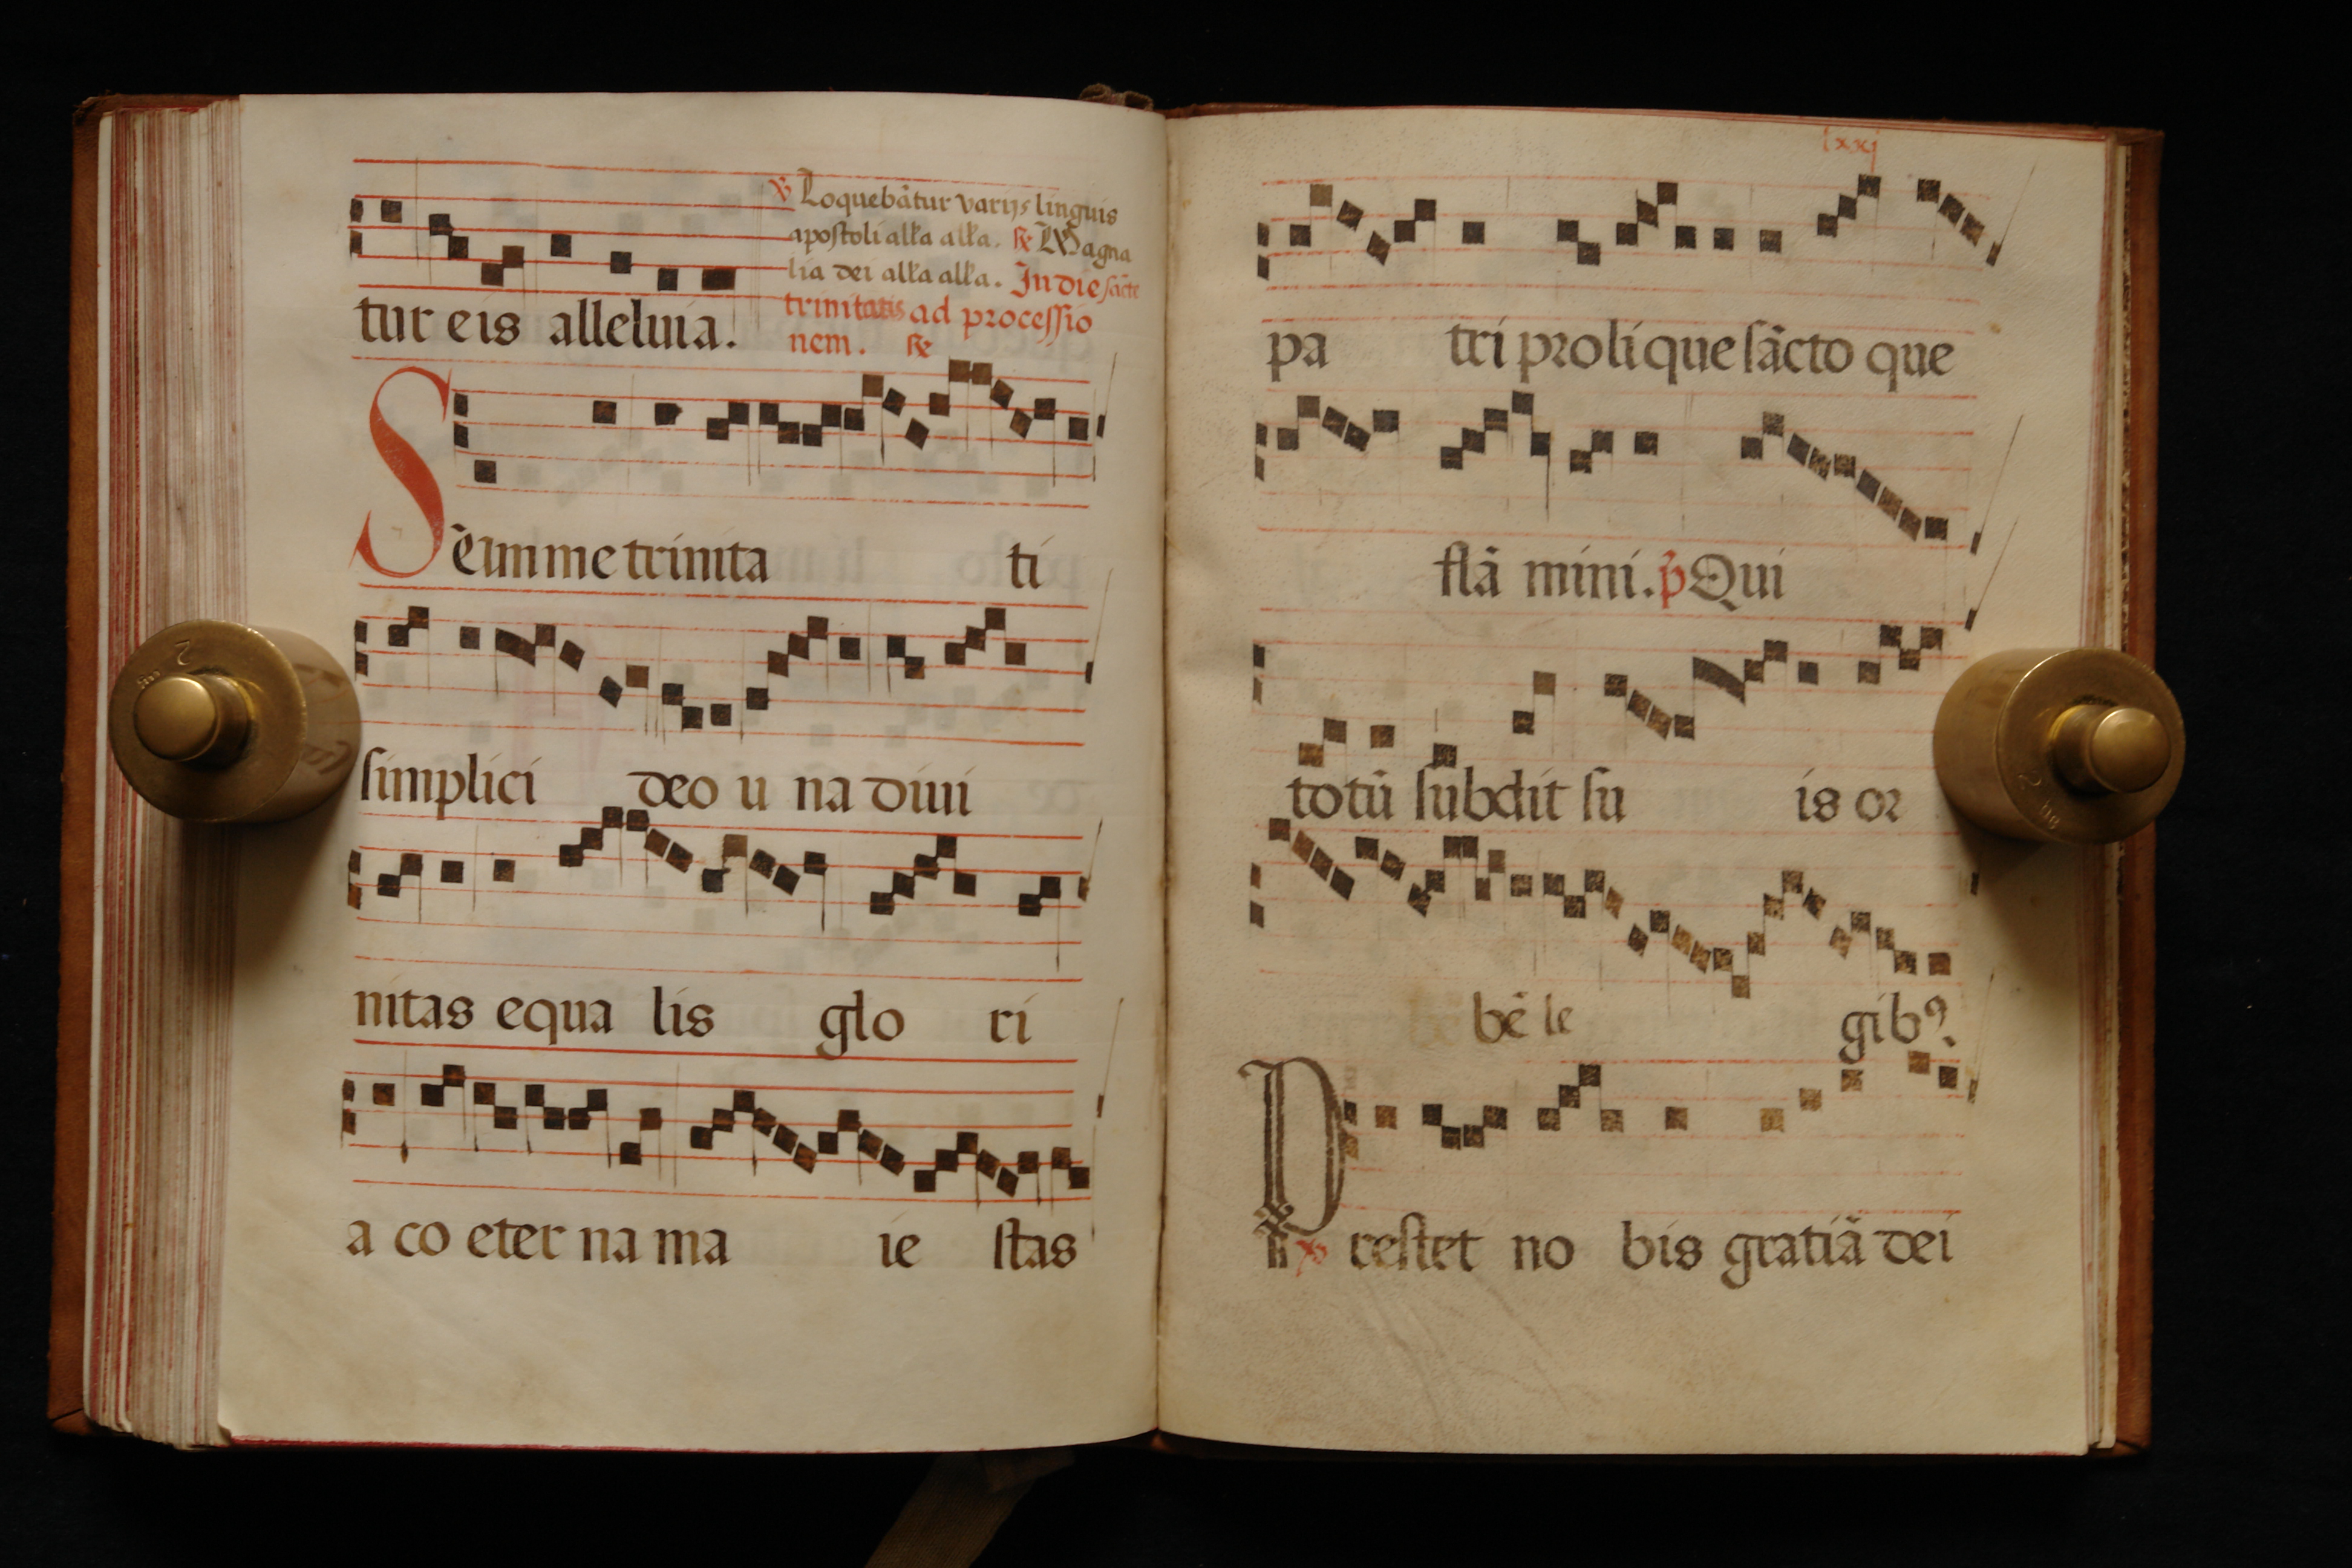 ℣ Loquebãtur varijs linguis
apostoli alľa alľa. ℟ Magna
lia dei alľa alľa. In die sãcte
trinitatis ad processio
nem. ℟
tur eis alleluia.
Sẽ um me trinita ti
simplici deo u na diui
nitas equa lis glo ri
a co eter na ma ie stas
lxxj
pa tri proli que sãcto que
flã mini. p̃ Qui
totũ subdit su is or
bẽ le gibꝰ.
℣ Prestet no bis gratiã dei
2
2